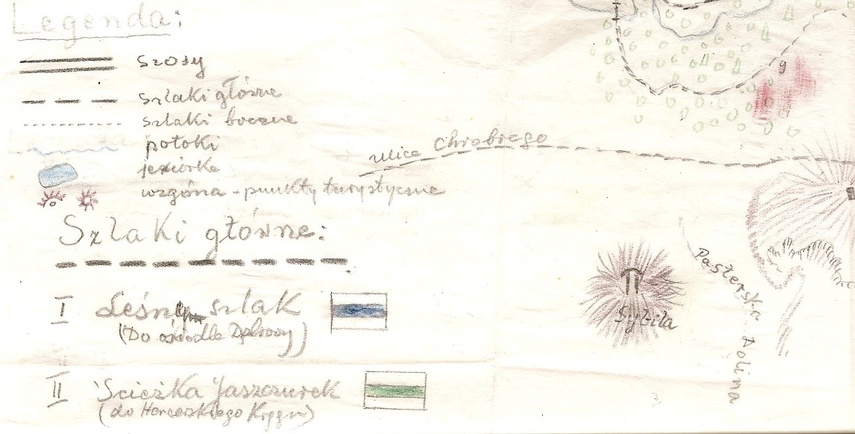 Legenda:
szosy
szlaki główne
szlaki boczne
potoki
jeziorka
wzgórza - punkty turystyczne
ulica Chrobrego
9
Szlaki główne:
I Leśny szlak
(Do ośrodka Dąbrowy)
II Ścieżka Jaszczurek
(do Harcerskiego Kręgu)
Sybila
Pasterska Dolina